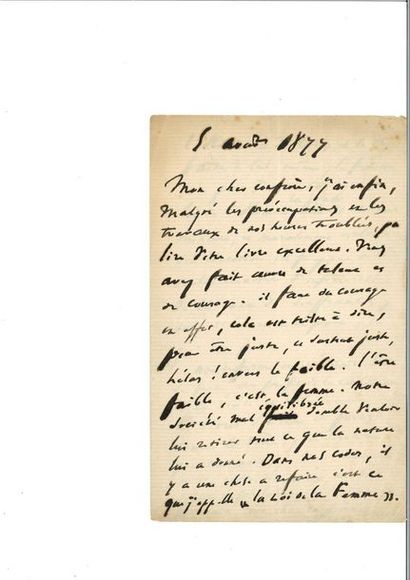 5 août 1877
Mon cher confrère, j'ai enfin,
malgré les préoccupations et les
travaux de nos heures troublées, pu
lire votre livre excellent. Vous
avez fait œuvre de talent et
de courage. il faut du courage
en effet, cela est triste à dire,
pour être juste, et surtout juste,
hélas ! envers le faible. l'être
faible, c'est la femme. Notre
société mal équilibrée semble vouloir
lui retirer tout ce que la nature
lui a donné. Dans nos codes, il
y a une chose à refaire c'est ce
que j'appelle « la Loi de la Femme ».